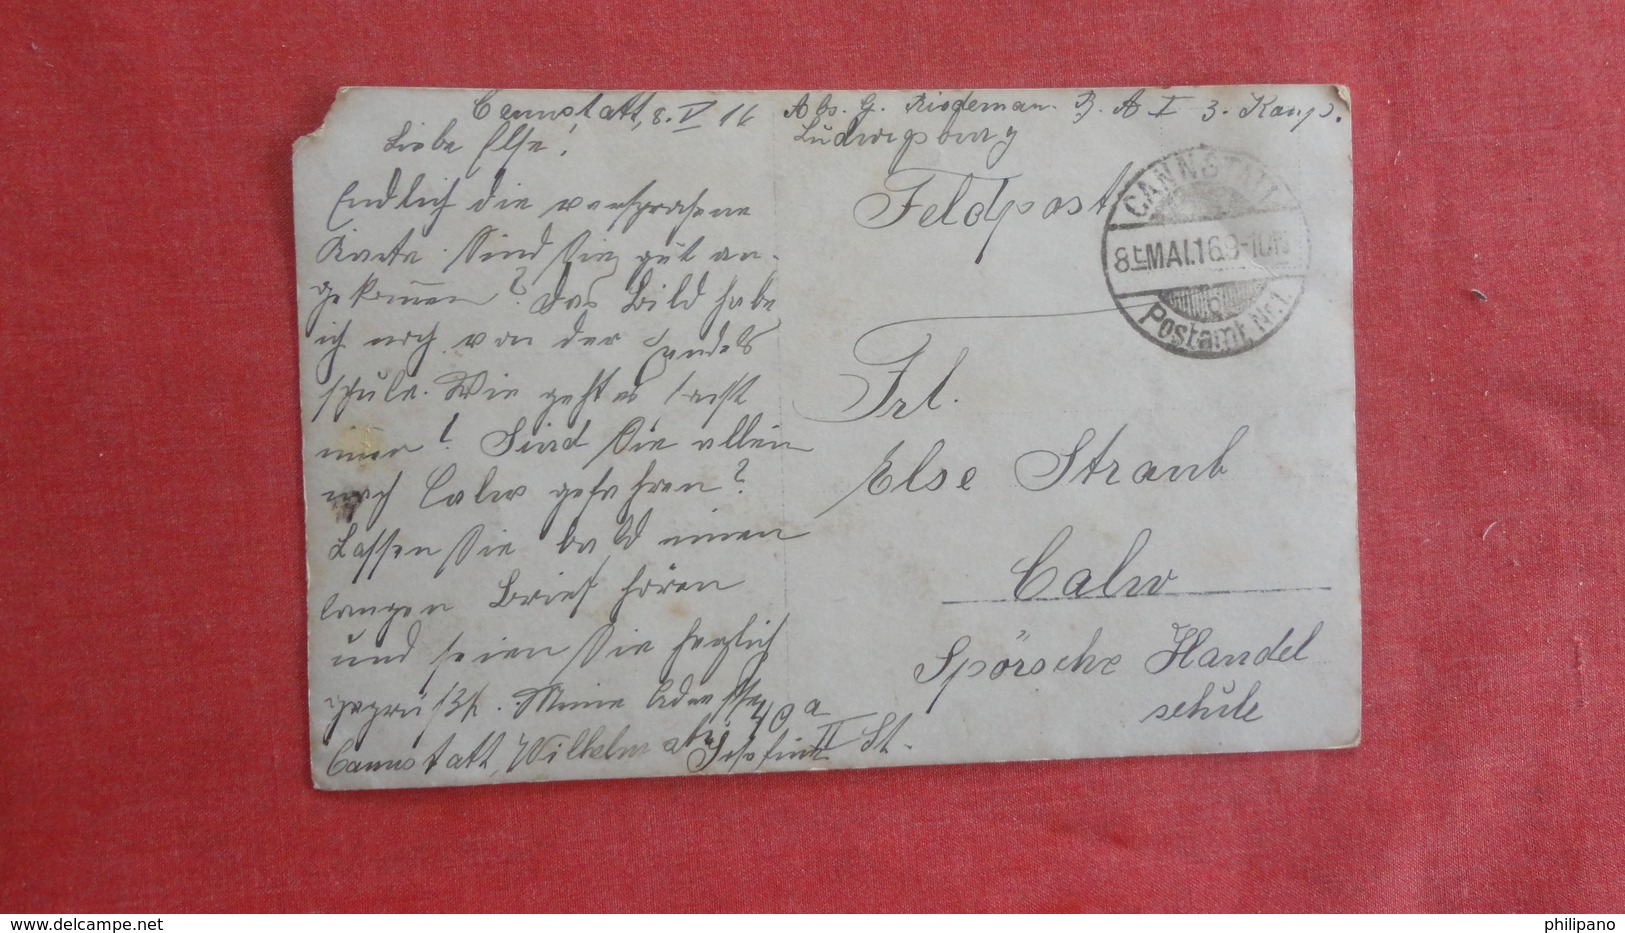 Cannstatt, 8. V 16
Liebe Else!
Endlich die versprochene
Karte. Sind Sie gut an-
gekommen? Das Bild habe
ich noch von der Handels
schule. Wie geht es
Sind Sie allein
nach Calw gefahren?
Lassen Sie bald einen
langen Brief hören
und seien Sie herzlich
gegrüßt. Meine Adresse
Cannstatt, Wilhelm 40a II St.
Josefine
Abs. G. Riedeman. 3. Komp.
Ludwigsburg
Feldpost
Frl.
Else Straub
Calw
Spörsche Handel
schule
CANNSTATT
8. MAI.16 9-10
Postamt Nr.1.
philipano